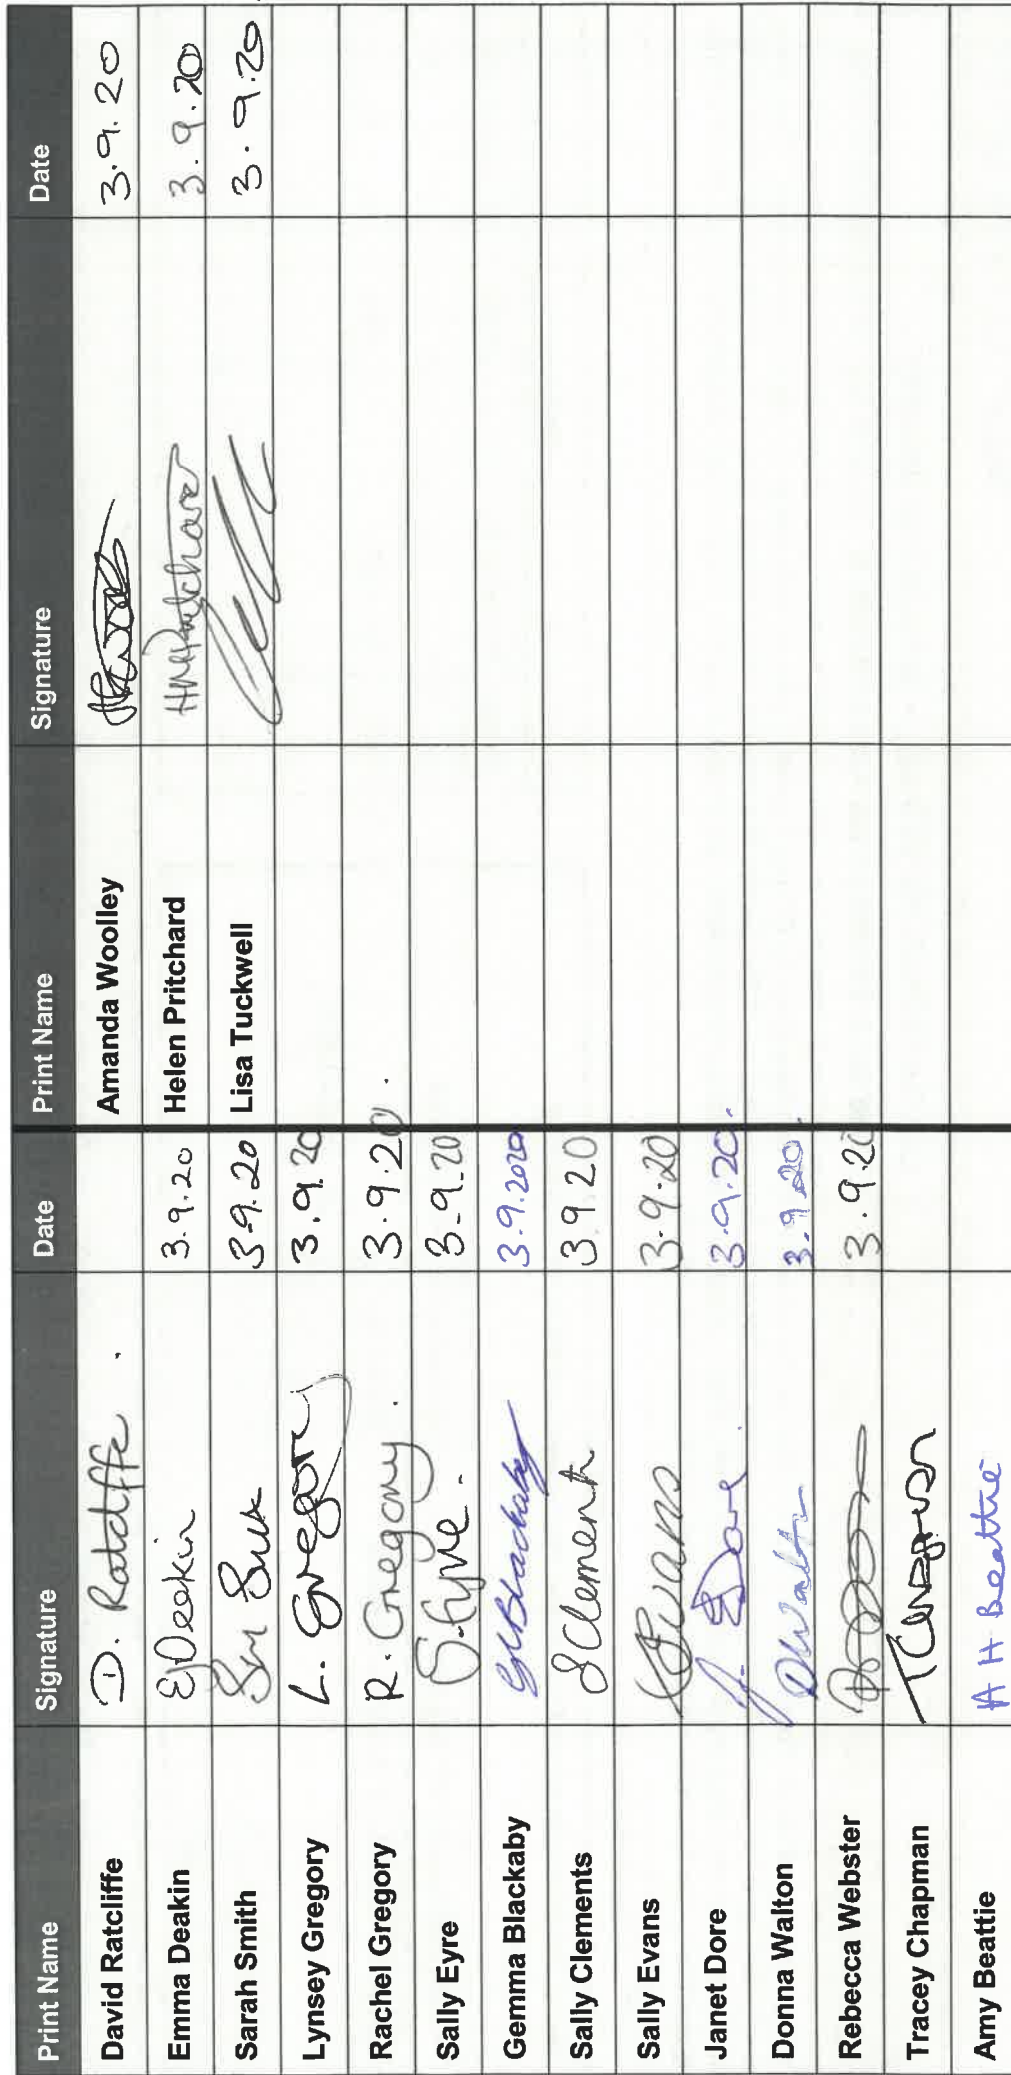 Print Name Signature Date Print Name Signature Date
David Ratcliffe D. Ratcliffe . Amanda Woolley 3.9.20
Emma Deakin EDeakin 3.9.20 Helen Pritchard HMPritchard 3.9.20
Sarah Smith 3.9.20 Lisa Tuckwell 3.9.20
Lynsey Gregory L. Gregory 3.9.20
Rachel Gregory R. Gregory. 3.9.20.
Sally Eyre S. Eyre. 3.9.20
Gemma Blackaby GBlackaby 3.9.2020
Sally Clements S Clements 3.9.20
Sally Evans SEvans 3.9.20
Janet Dore J. Dore. 3.9.20.
Donna Walton DWalton 3.9.20.
Rebecca Webster 3.9.20
Tracey Chapman TChapman
Amy Beattie A H Beattie